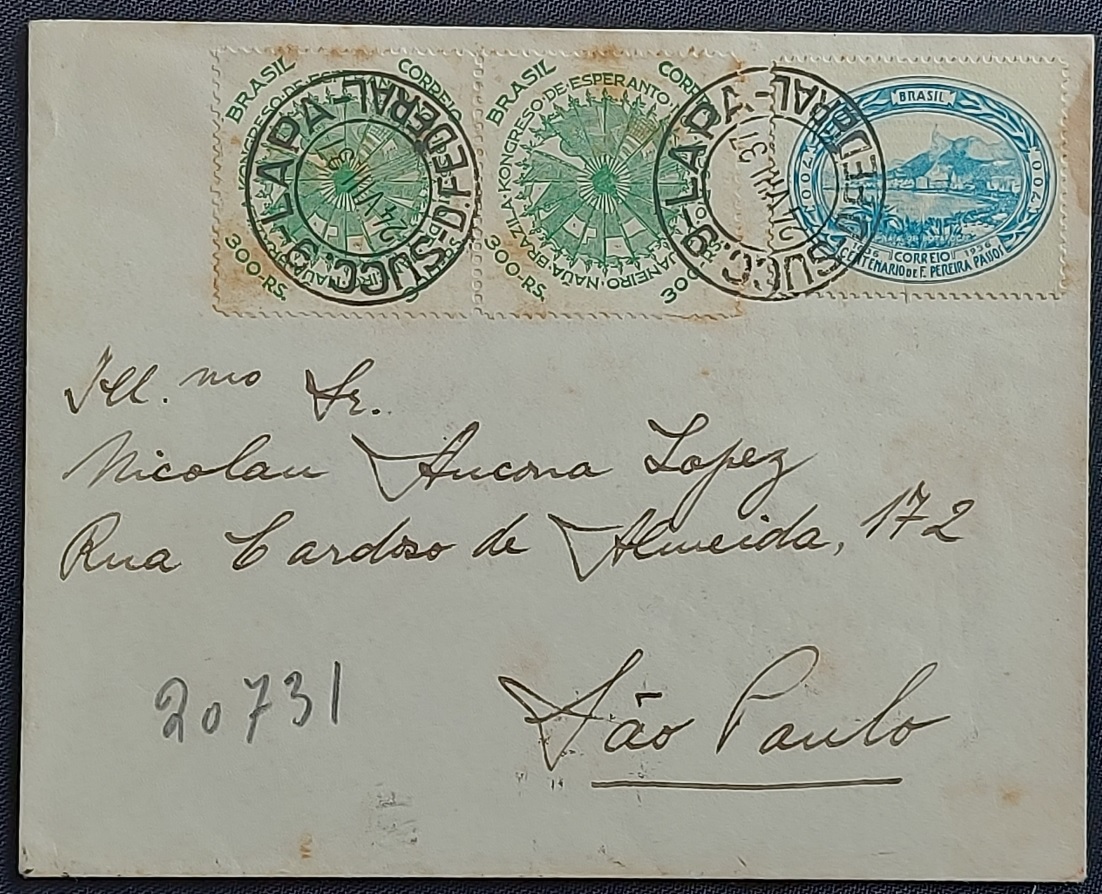 BRASIL CORREIO
300 RS.
BRASIL
KONGRESO·DE·ESPERANTO·
JANEIRO·NAŬA·BRAZILA·
300 RS.
300
BRASIL
700
CORREIO
1836 1936
CENTENARIO DE F. PEREIRA PASSOS
SUCC. 9-LAPA-D. FEDERAL-
24 VIII
SUCC. 9-LAPA-D. FEDERAL-
VIII 37
Ill.mo Sr.
Nicolau Ancona Lopez
Rua Cardoso de Almeida, 172
São Paulo
20731